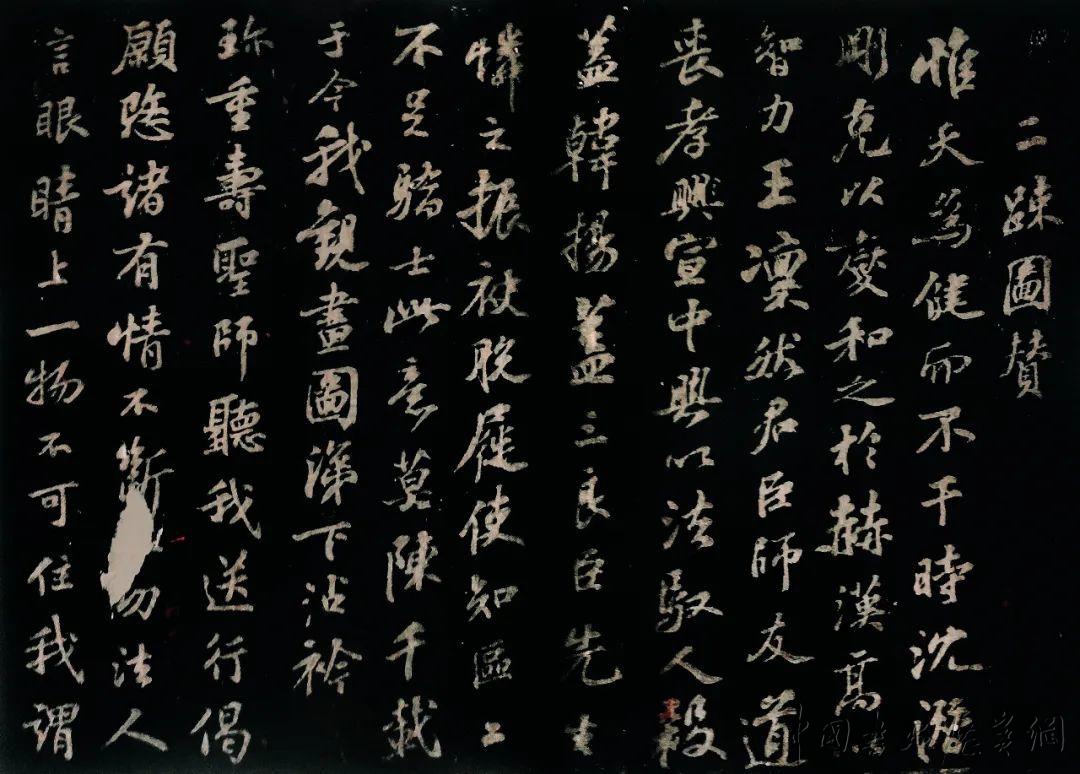 二疎圖贊
惟天爲健而不干時沈潛
剛克以燮和之於赫漢高
智力王凜然君臣師友道
喪孝興宣中興以法馭人殺
蓋韓揚蓋三良臣先生
憐之振袂脫屣使知區〻
不足驕士此意莫陳千載
于今我觀畫圖涕下沾衿
珎重壽聖師聽我送行偈
願愍諸有情不斷法人
言眼睛上一物不可住我謂
中國網